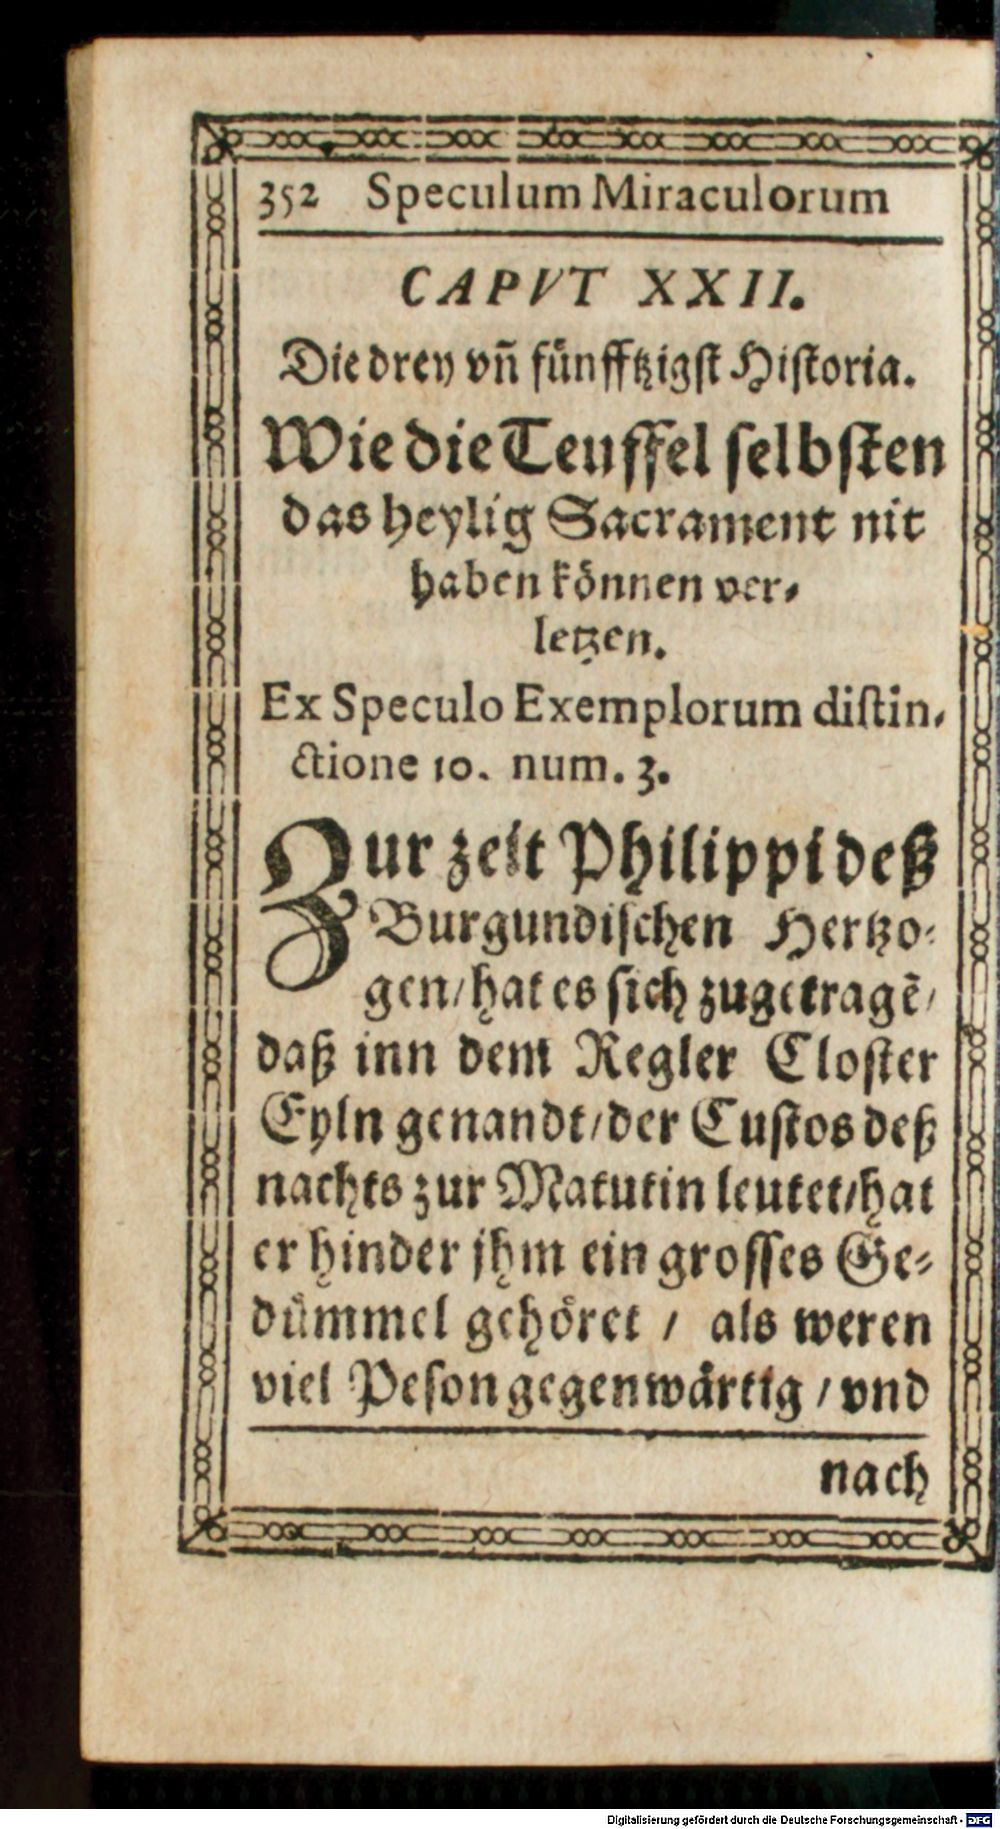 352 Speculum Miraculorum
CAPVT XXII.
Die drey vñ fünfftzigſt Hiſtoria.
Wie die Teuffel ſelbſten
das heylig Sacrament nit
haben können ver⸗
letzen.
Ex Speculo Exemplorum diſtin-
ctione 10. num. 3.
Zur zeit Philippi deß
Burgundiſchen Hertzo⸗
gen/ hat es ſich zugetragẽ/
daß inn dem Regler Cloſter
Eyln genandt/ der Cuſtos deß
nachts zur Matutin leutet/ hat
er hinder jhm ein groſſes Ge⸗
dümmel gehöret / als weren
viel Peſon gegenwärtig / vnd
nach
Digitalisierung gefördert durch die Deutsche Forschungsgemeinschaft - DFG